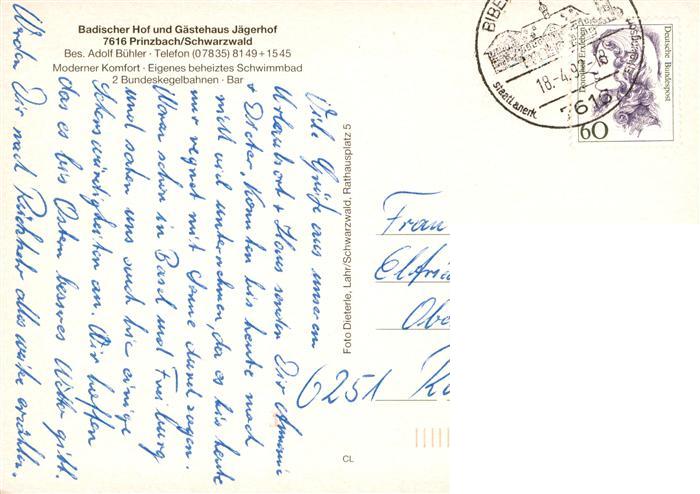 Badischer Hof und Gästehaus Jägerhof
7616 Prinzbach/Schwarzwald
Bes. Adolf Bühler · Telefon (07835) 8149 + 1545
Moderner Komfort · Eigenes beheiztes Schwimmbad
2 Bundeskegelbahnen · Bar
Viele Grüße aus unserem
Urlaubsort + Haus senden Dir
+ Dieter. Konnten bis heute noch
nicht viel unternehmen, da es bis heute
nur regnet mit Sonne durchzogen.
Waren schon in Basel und Freiburg
und sahen uns auch hie einige
Sehenswürdigkeiten an. Wir hoffen
das es bis Ostern besseres Wetter gibt.
Werden Dir nach Rückkehr alles weitere erzählen.
Foto Dieterle, Lahr/Schwarzwald, Rathausplatz 5
CL
BIBE
staatl. anerk.
18.-4.
7616
Deutsche Bundespost
Dorothea Erxleben
60
Frau
Elfrie
Obe
6251